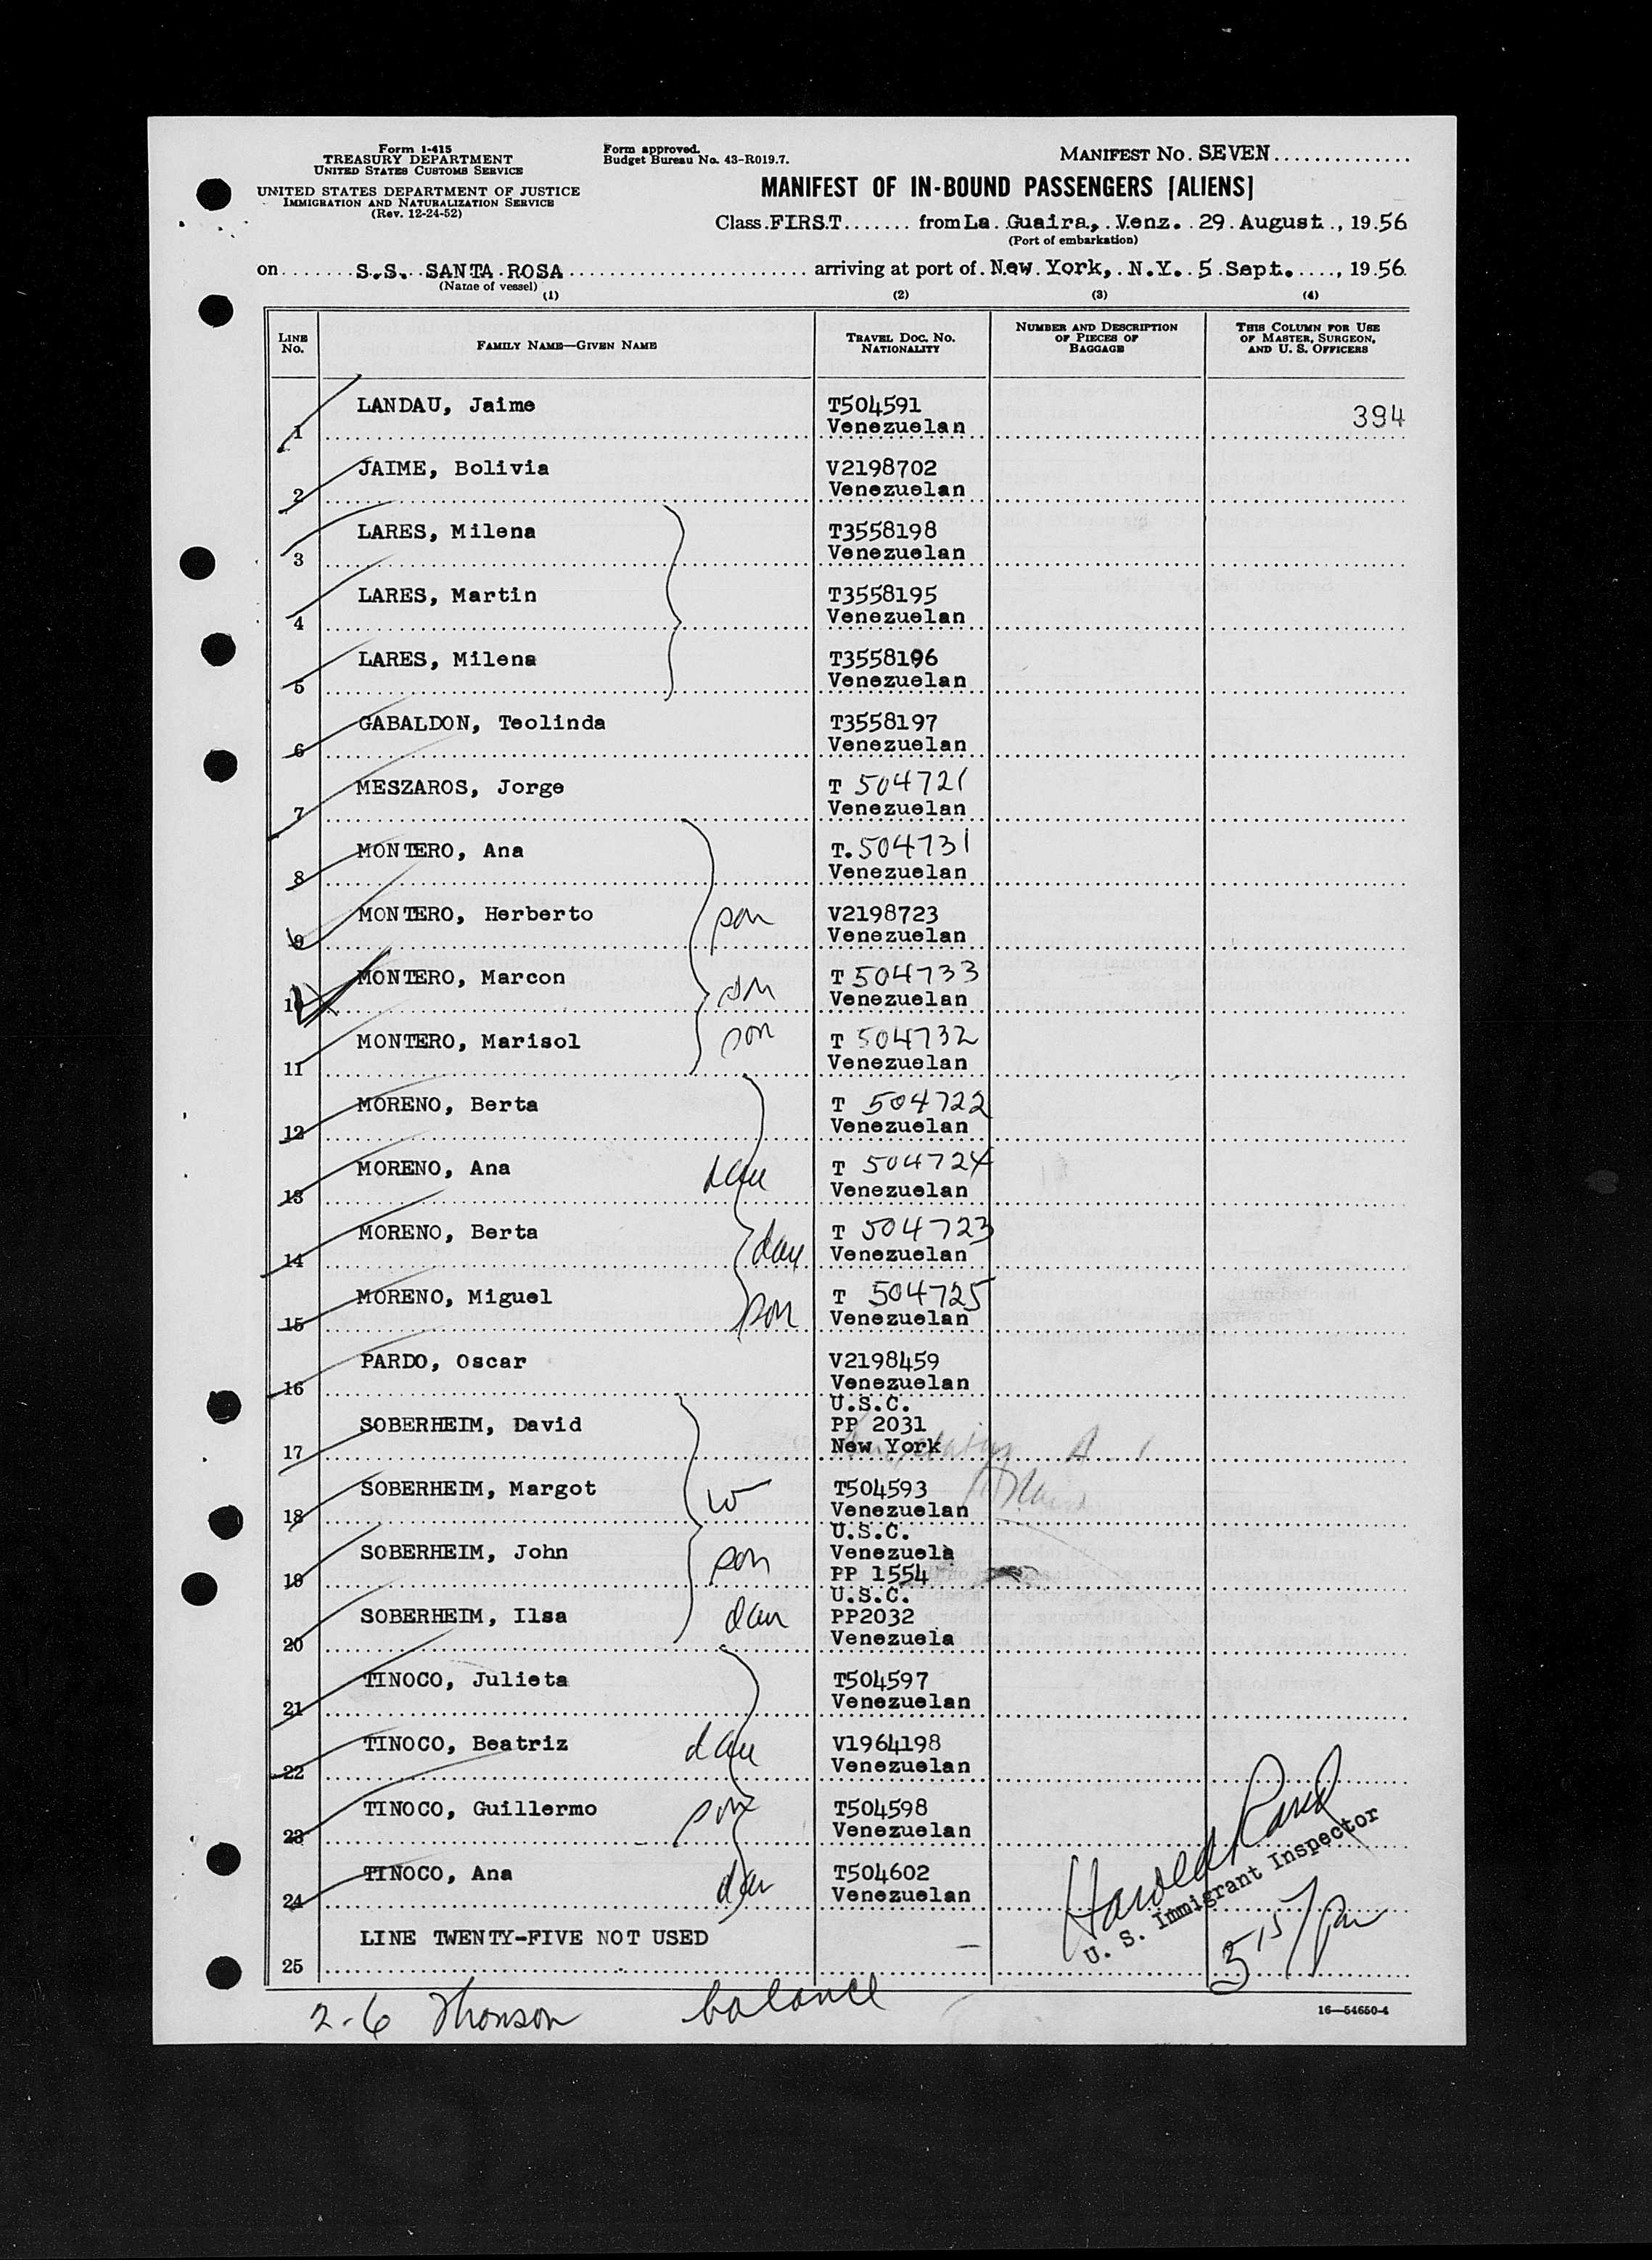 Form I-415
TREASURY DEPARTMENT
UNITED STATES CUSTOMS SERVICE
UNITED STATES DEPARTMENT OF JUSTICE
IMMIGRATION AND NATURALIZATION SERVICE
(Rev. 12-24-52)
Form approved.
Budget Bureau No. 43-R019.7.
MANIFEST NO. SEVEN
MANIFEST OF IN-BOUND PASSENGERS [ALIENS]
Class FIRST from La Guaira, Venz. 29 August, 1956
(Port of embarkation)
on S.S. SANTA ROSA arriving at port of New York, N.Y. 5 Sept., 1956
(Name of vessel)
(1) (2) (3) (4)
LINE NO. FAMILY NAME—GIVEN NAME TRAVEL DOC. NO. NATIONALITY NUMBER AND DESCRIPTION OF PIECES OF BAGGAGE THIS COLUMN FOR USE OF MASTER, SURGEON, AND U. S. OFFICERS
1 LANDAU, Jaime T504591 394
Venezuelan
2 JAIME, Bolivia V2198702
Venezuelan
3 LARES, Milena T3558198
Venezuelan
4 LARES, Martin T3558195
Venezuelan
5 LARES, Milena T3558196
Venezuelan
6 GABALDON, Teolinda T3558197
Venezuelan
7 MESZAROS, Jorge T 504721
Venezuelan
8 MONTERO, Ana T. 504731
Venezuelan
9 MONTERO, Herberto son V2198723
Venezuelan
10 MONTERO, Marcon son T 504733
Venezuelan
11 MONTERO, Marisol son T 504732
Venezuelan
12 MORENO, Berta T 504722
Venezuelan
13 MORENO, Ana dau T 504724
Venezuelan
14 MORENO, Berta dau T 504723
Venezuelan
15 MORENO, Miguel son T 504725
Venezuelan
16 PARDO, Oscar V2198459
Venezuelan
U.S.C.
17 SOBERHEIM, David PP 2031
New York
18 SOBERHEIM, Margot W T504593
Venezuelan
U.S.C.
19 SOBERHEIM, John son Venezuela
PP 1554
U.S.C.
20 SOBERHEIM, Ilsa dau PP2032
Venezuela
21 TINOCO, Julieta T504597
Venezuelan
22 TINOCO, Beatriz dau V1964198
Venezuelan
23 TINOCO, Guillermo son T504598
Venezuelan
24 TINOCO, Ana dau T504602
Venezuelan
25 LINE TWENTY-FIVE NOT USED
Harold Rand
U. S. Immigrant Inspector
5 15/pm
2-6 Thonson balance
16—54650-4